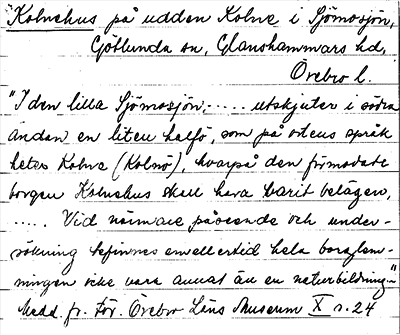 "Kolnehus på udden Kolne i Sjömosjön,
Götlunda sn, Glanshammars hd,
Örebro l.
"I den lilla Sjömosjön, ..... utskjuter i södra
ändan en liten halfö, som på ortens språk
heter Kolne (Kolnö), hvarpå den förmodade
borgen Kolnehus skall hava varit belägen,
..... Vid närmare påseende och under-
sökning befinnes emellertid hela borglem-
ningen icke vara annat än en naturbildning."
Medd. fr. För. Örebro Läns Museum X s. 24